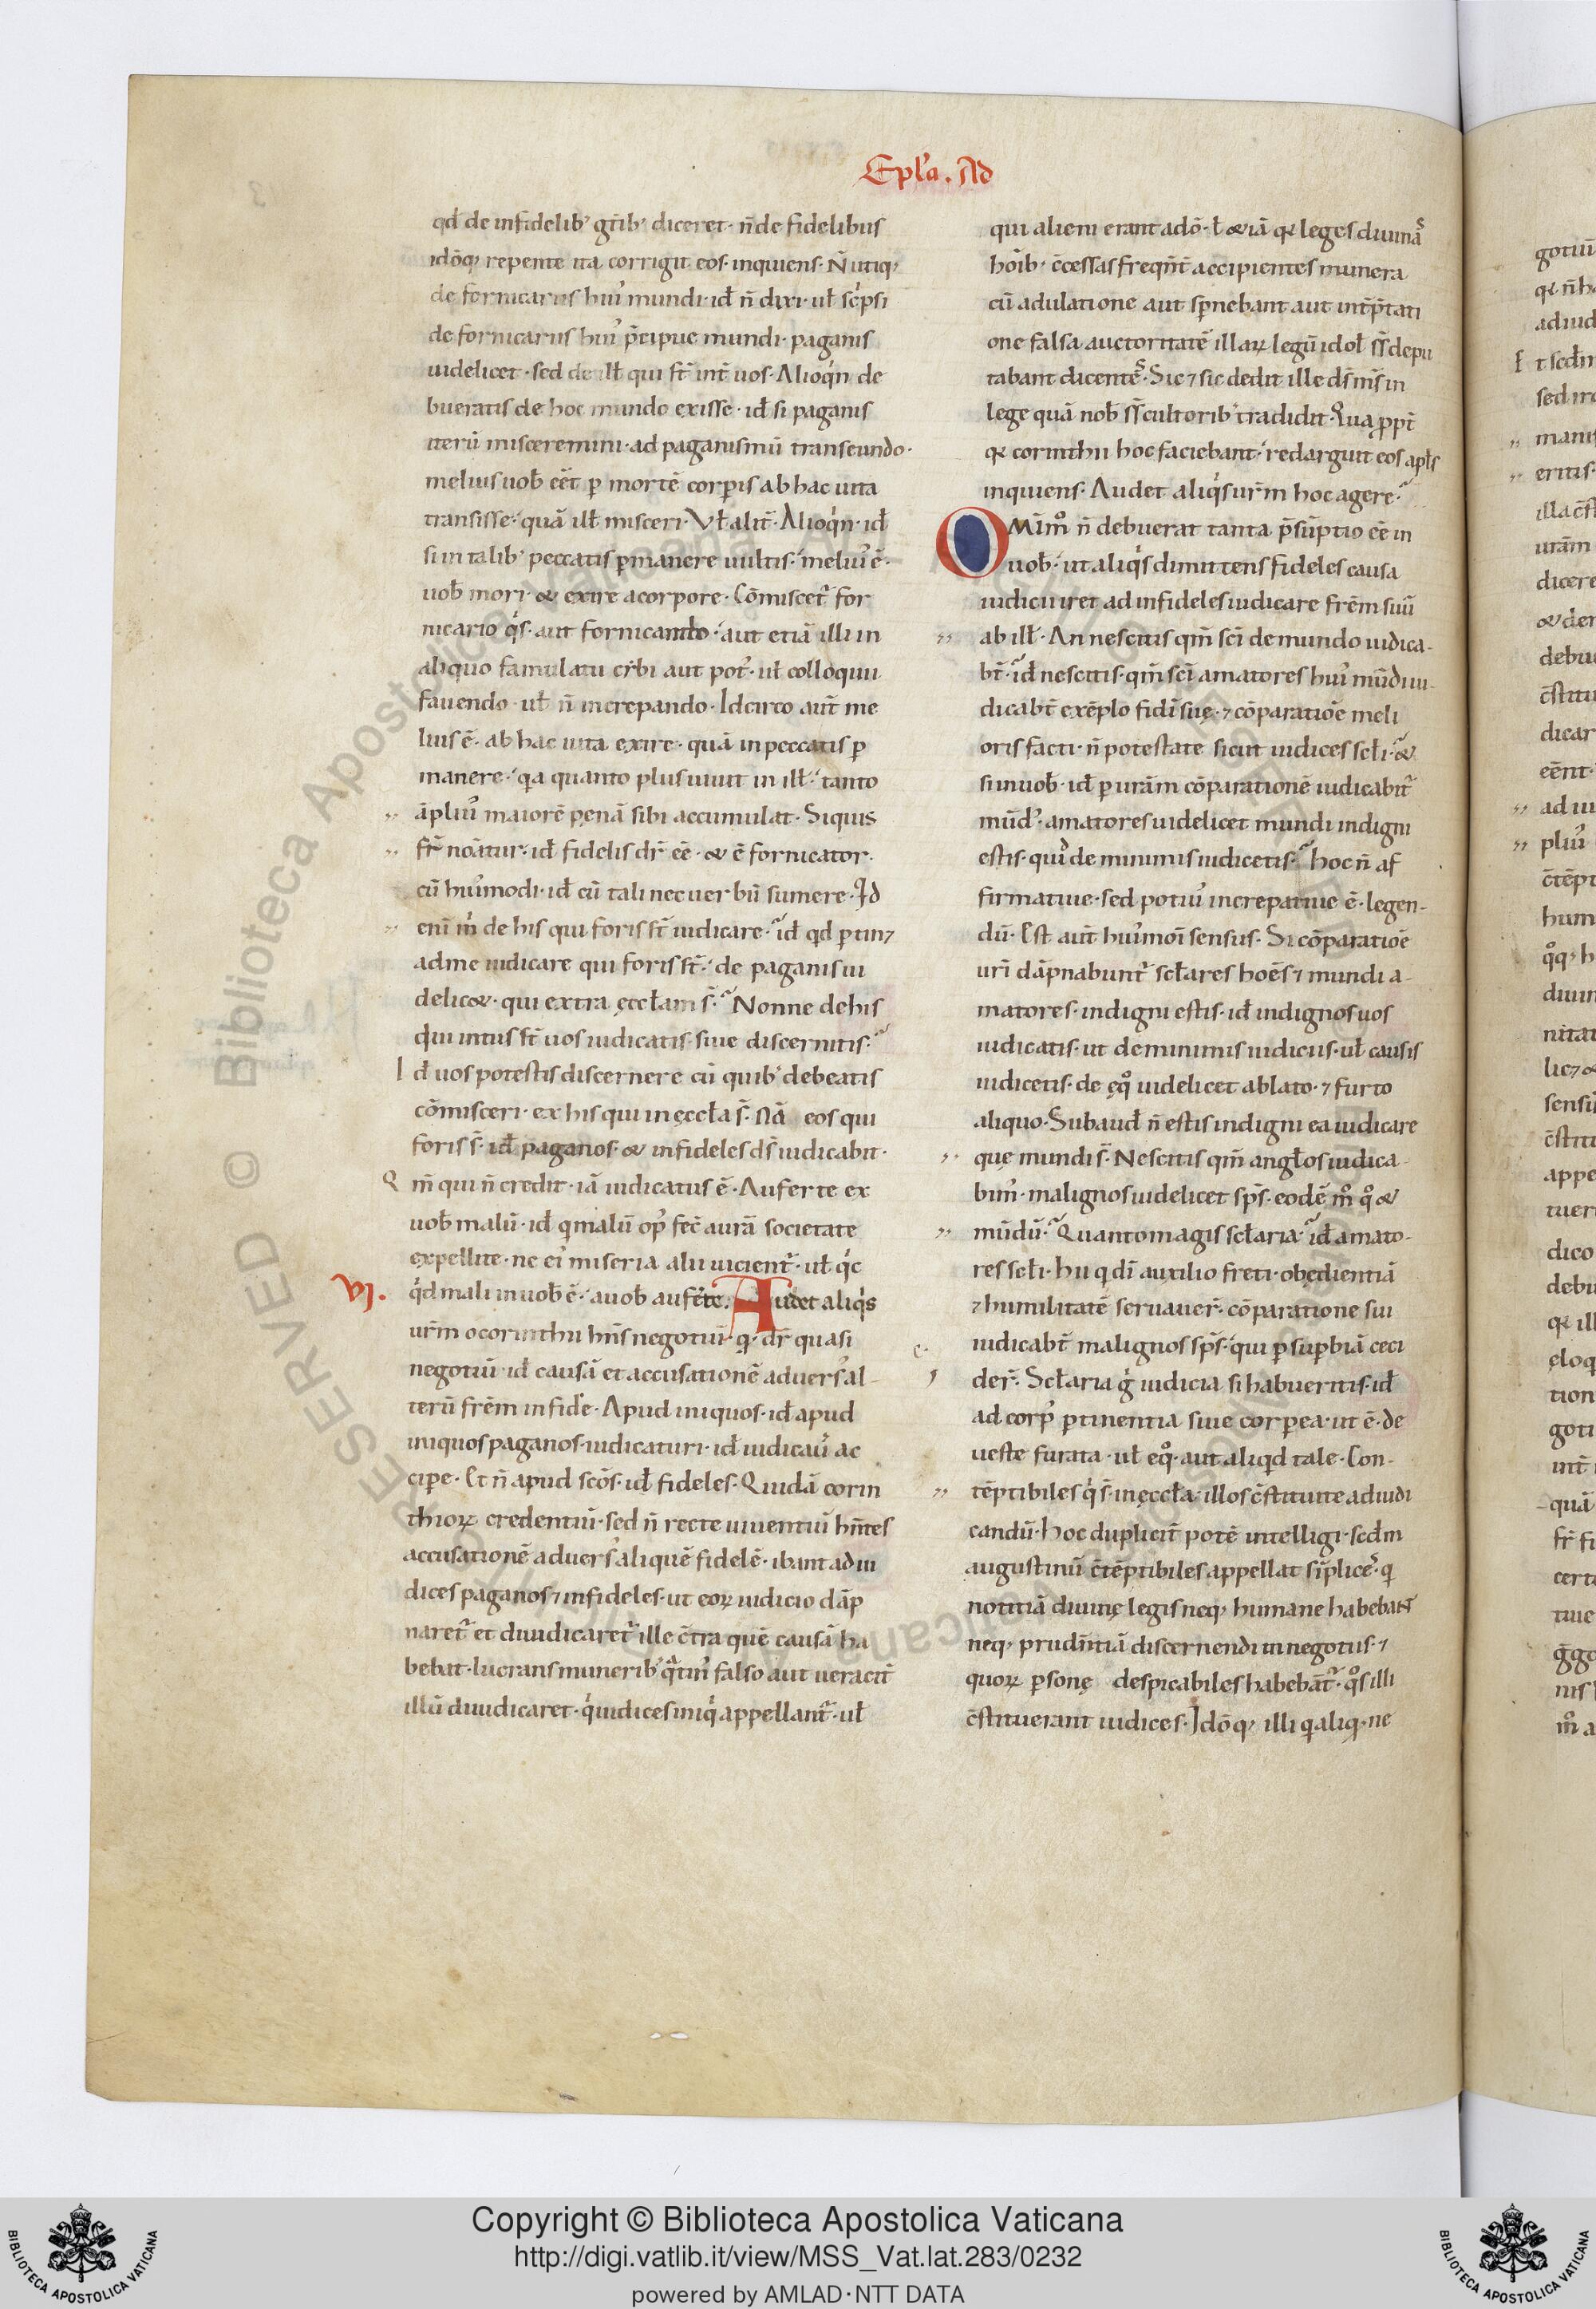 Epl'a. Ad
qđ de infidelib' gn̄tib' diceret· n̄ de fidelibus
idōq; repente ita corrigit eos· inquiens· N̄ utiq;
de fornicariis hui' mundi· id̄ n̄ dixi· ul̄ sc̄psi
de fornicariis hui' p̄cipue mundi· paganis
uidelicet· sed de ill̄ qui st̄ int̄ uos· Alioqin de
bueratis de hoc mundo exisse· id̄ si paganis
iterū misceremini· ad paganismū transeundo·
melius uob̄ eēt p̱ mortē corp̱is ab hac uita
transisse· quā ill̄ misceri· Vl̄ alit̄· Alioqin· id̄
si in talib' peccatis p̱manere uultis· meliu' ē·
uob̄ mori· & exire a corpore· Cōmiscet̄ for
nicario qis· aut fornicando· aut etiā illi in
aliquo famulatu
fauendo· ul̄ n̄ increpando· Idcirco aut̄ me
lius ē· ab hac uita exire· quā in peccatis p̱
manere· qa quanto plus uiuit in ill̄· tanto
āpliu' maiorē penā sibi accumulat· Siquis
fr̄ noātur· id̄ fidelis dr̄ eē· & ē fornicator·
cū hui'modi· id̄ cū tali nec uerbū sumere· Qd
enī m̄ de his qui foris st̄ iudicare· id̄ qd p̱tin&
ad me iudicare qui foris st̄· de paganis ui
delic&· qui extra ęccl̄am s̄· Nonne de his
qui intus st̄ uos iudicatis· siue discernitis·
I d̄ uos potestis discernere cū quib' debeatis
cōmisceri· ex his qui in ęccl̄a s̄· Nā eos qui
foris s̄· id̄ paganos· & infideles ds̄ iudicabit·
Q m̄ qui n̄ credit· iā iudicatus ē· Auferte ex
uob̄ malū· id̄ q malū op' fec̄ a urā societate
expellite· ne ei' miseria alii uicient̄· ul̄ qic
VI. qid mali in uob̄ ē· a uob̄ auferte. Audet aliqis
ur̄m o corinthii hn̄s negotiū· q dr̄ quasi
negotiū· id̄ causā et accusationē aduers' al-
terū frēm in fide· Apud iniquos· id̄ apud
iniquos paganos· iudicaturi· id̄ iudicaū ac
cipe· Et n̄ apud scōs· id̄ fideles· Quidā corin
thioꝝ credentiū· sed n̄ recte uiuentiū hn̄tes
accusationē aduers' aliquē fidelē· ibant ad iu
dices paganos & infideles· ut eoꝝ iudicio dāp
naret̄ et diiudicaret̄ ille c̄tra quē causā ha
bebat· lucrans munerib' falso aut ueracit̄
illū diiudicaret· qi iudices iniqi appellant̄· ul̄
qui alieni erant a dō· l̄ & iā q leges diuinas
hoīb· c̄cessas freqn̄t accipientes munera
cū adulatione aut sp̱nebant aut int̄p̄tati
one falsa auctoritatē illaꝝ legū idol̄ ss̄ depu
tabant dicentes· Sic & sic dedit ille ds̄ nr̄s in
lege quā nob̄ ss̄ cultorib' tradidit· Qua ppt̄
q corinthii hoc faciebant· redarguit eos apl̄s
inquiens· Audet aliqis ur̄m hoc agere·
Omīmo n̄ debuerat tanta p̄sūptio eē in
uob̄· ut aliqis dimittens fideles causa
iudicii iret ad infideles iudicare frēm suū
ab ill̄· An nescitis qm̄ scī de mundo iudica-
bt̄· id̄ nescitis· qm̄ scī amatores hui' mūdi iu-
dicabt̄ exēplo fidī suę· & cōparatiōe meli
oris facti· n̄ potestate sicut iudices scl̄i· &
si in uob̄· id̄ p̱ urām cōparationē iudicabit̄
mūd'· amatores uidelicet mundi indigni
estis· qui de minimis iudicetis· hoc n̄ af
firmatiue· sed potiu' increpatiue ē· legen-
dū· Est aut̄ hui'moī sensus· Si cōparatiōe
urī dāpnabunt̄ scl̄ares hoēs & mundi a-
matores· indigni estis· id̄ indignos uos
iudicatis· ut de minimis iudiciis· ul̄ causis
iudicetis· de eqo uidelicet ablato· & furto
aliquo· Subaud̄ n̄ estis indigni ea iudicare
que mundi s̄· Nescitis qm̄ angl̄os iudica-
bim'· malignos uidelicet sps̄· eodē mo qo &
mūdū· Quanto magis scl̄aria· id̄ amato-
res scl̄i· hii q dī auxilio freti· obędientiā
& humilitatē seruauer̄· cōparatione sui
iudicabt̄ malignos sps̄· qui p̱ sup̱biā ceci
der̄· Scl̄aria gi iudicia si habueritis· id̄
ad corp' p̱tinentia siue corp̱ea· ut ē· de
ueste furata· ul̄ eqo· aut aliqid tale· Con-
tēptibiles qi s̄· in ęccl̄a· illos c̄stituite ad iudi
candū· hoc duplicit̄ potē intelligi· scd̄m
augustinū c̄tēptibiles appellat sīplices· q
notitiā diuinę legis neq; humane habebant
neq; prudn̄tiā discernendi in negotiis· &
quoꝝ p̱sonę despicabiles habebāt̄· qos illi
c̄stituerant iudices· Idōq; illi q aliq· ne
Copyright © Biblioteca Apostolica Vaticana
http://digi.vatlib.it/view/MSS_Vat.lat.283/0232
powered by AMLAD·NTT DATA